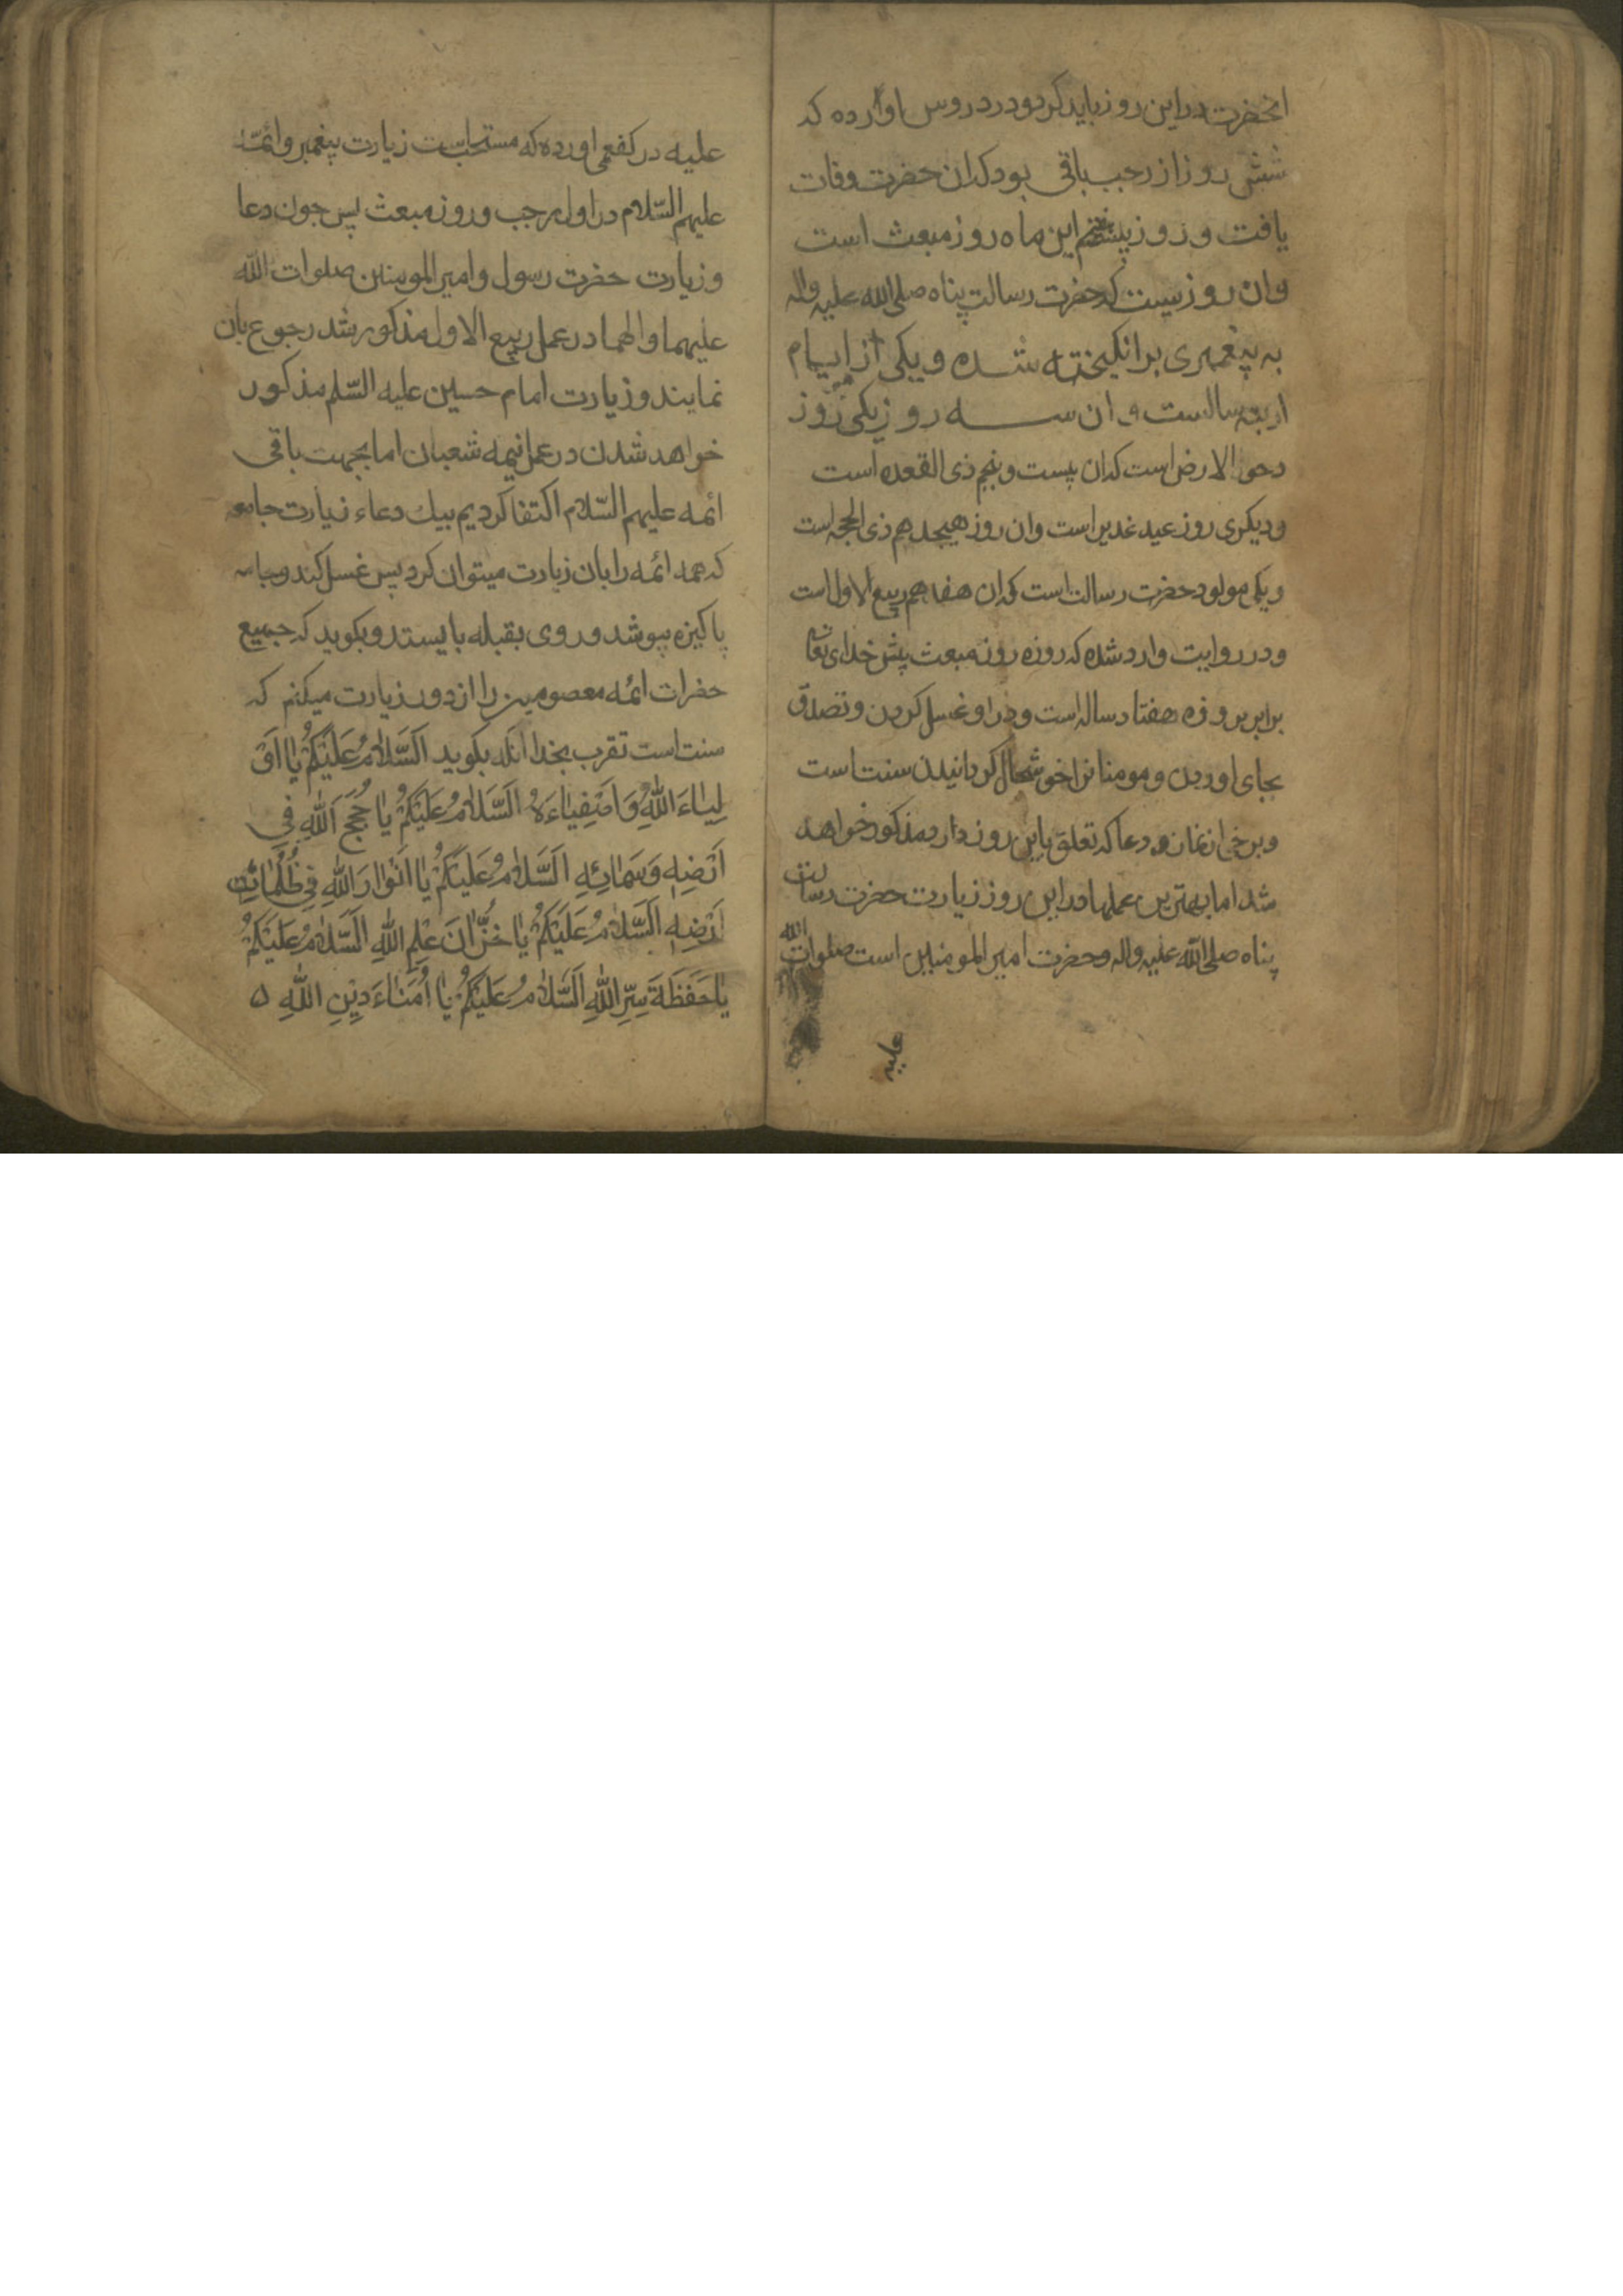 انحضرت دراین روز باید کرد ودر دروس اوارده که
شش روز از رجب باقی بود که ان حضرت وفات
یافت و روز این ماه روز مبعث است
وان روزیست که حضرت رسالت پناه صلی الله علیه واله
به پیغمبری برانکیخته شده و یکی از ایام
اربعه سالست و ان سه روز یکی روز
دحو الارض است که ان بیست و پنجم ذی القعده است
ودیکری روز عید غدیر است وان روز هیجدهم ذی الحجه است
ویکی مولود حضرت رسالت است که ان هفدهم ربیع الاول است
ودر روایت وارد شده که روزه روز مبعث پیش خدای تعالی
برابر روزه هفتاد ساله است ودر او غسل کردن وتصدق
بجای اوردن و مومنانرا خوشحال کردانیدن سنت است
وبرخی از نماز و دعا که تعلق باین روز دارد مذکور خواهد
شد اما بهترین عملها دراین روز زیارت حضرت رسالت
پناه صلی الله علیه واله وحضرت امیر المومنین است صلوات الله
علیه
علیه در کفعمی اورده که مستحب است زیارت پیغمبر وائمه
علیهم السّلام در اول رجب و روز مبعث پس چون دعا
وزیارت حضرت رسول وامیر المومنین صلوات الله
علیهما والهما در عمل ربیع الاول مذکور شد رجوع بان
نمایند و زیارت امام حسین علیه السّلم مذکور
خواهد شدن در عمل نیمه شعبان اما بجهت باقی
ائمه علیهم السّلام اکتفا کردیم بیك دعاء زیارت جامعه
که همه ائمه را بان زیارت میتوان کرد پس غسل کند وجامه
پاکیزه بپوشد و روی بقبله بایستد و بکوید که جمیع
حضرات ائمه معصومین را از دور زیارت میکنم که
سنت است تقرب بخدا انکه بکوید اَلسَّلامُ عَلَیْکُمْ یا اَوْ
لِیاءَ اللّٰهِ وَاَصْفِیاءَهُ اَلسَّلامُ عَلَیْکُمْ یا حُجَجَ اللّٰهِ فِي
اَرْضِهِ وَسَمائِهِ اَلسَّلامُ عَلَیْکُمْ یا اَنْوارَ اللّٰهِ فِي ظُلُماتِ
اَرْضِهِ اَلسَّلامُ عَلَیْکُمْ یا خُزّانَ عِلْمِ اللّٰهِ اَلسَّلامُ عَلَیْکُمْ
یا حَفَظَةَ سِرِّ اللّٰهِ اَلسَّلامُ عَلَیْکُمْ یا اُمَناءَ دِیْنِ اللّٰهِ